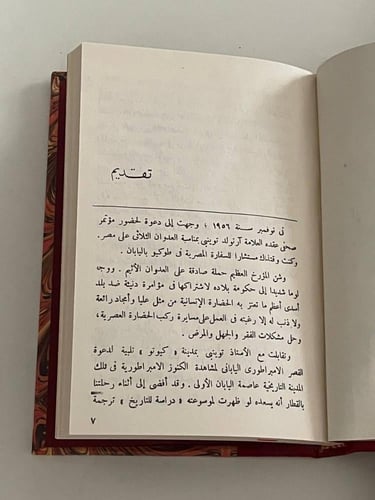 تقديم
فى نوفمبر سنة ١٩٥٦ ، وجهت إلى دعوة لحضور مؤتمر
صحفى عقده العلامة آرنولد توينبى بمناسبة العدوان الثلاثى على مصر .
وكنت وقتذاك مستشارا للسفارة المصرية فى طوكيو باليابان .
وشن المؤرخ العظيم حملة صادقة على العدوان الأثيم . ووجه
لوما شديدا إلى حكومة بلاده لاشتراكها فى مؤامرة دنيئة ضد بلد
أسدى أعظم ما تعتز به الحضارة الإنسانية من مثل عليا وأمجاد رائعة
ولا ذنب له إلا رغبته فى العمل على مسايرة ركب الحضارة العصرية ،
وحل مشكلات الفقر والجهل والمرض .
وتقابلت مع الأستاذ توينبى بمدينة « كيوتو » تلبية لدعوة
القصر الامبراطورى اليابانى لمشاهدة الكنوز الامبراطورية فى تلك
المدينة التاريخية عاصمة اليابان الأولى . وقد أفضى إلى أثناء رحلتنا
بالقطار أنه يسعده لو ظهرت لموسوعته « دراسة للتاريخ » ترجمة
٧